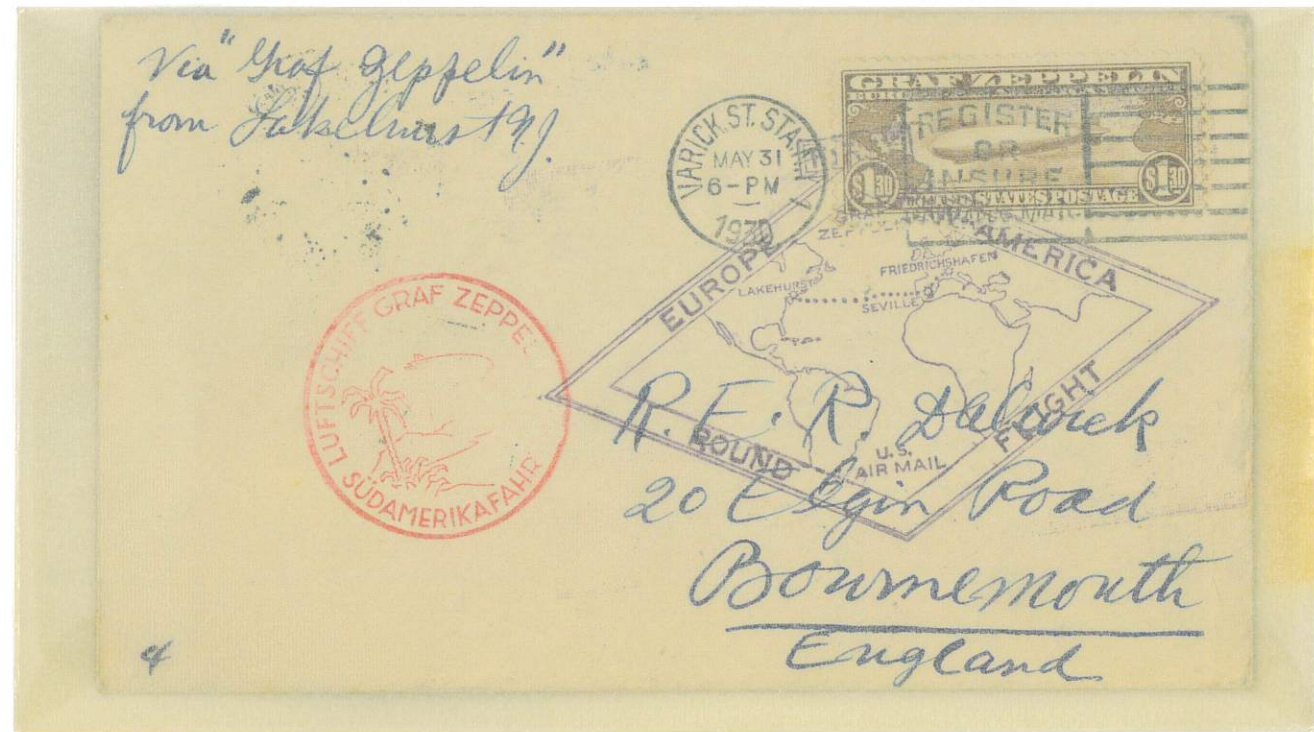 Via "Graf Zeppelin"
from Lakehurst N.J.
VARICK ST. STA.
MAY 31
6-PM
1930
GRAF ZEPPELIN
$1 30 $1 30
UNITED STATES POSTAGE
REGISTER
OR
INSURE
EUROPE AMERICA
ROUND FLIGHT
FRIEDRICHSHAFEN
LAKEHURST
SEVILLE
U.S.
AIR MAIL
LUFTSCHIFF GRAF ZEPPEL
SÜDAMERIKAFAHR
R. E. R.
20 Elgin Road
Bournemouth
England
4